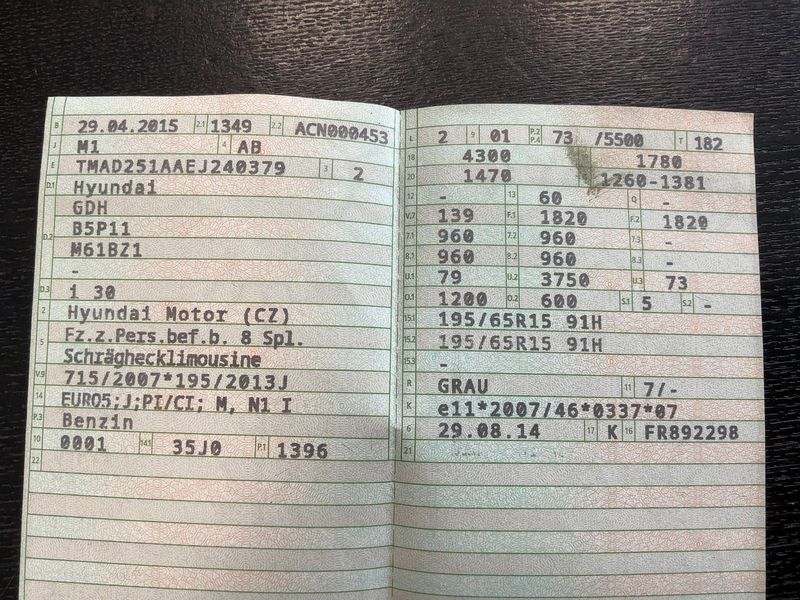 B 29.04.2015 2.1 1349 2.2 ACN000453
J M1 4 AB
E TMAD251AAEJ240379 3 2
D.1 Hyundai
GDH
D.2 B5P11
M61BZ1
-
D.3 i 30
2 Hyundai Motor (CZ)
5 Fz.z.Pers.bef.b. 8 Spl.
Schräghecklimousine
V.9 715/2007*195/2013J
14 EURO5;J;PI/CI; M, N1 I
P.3 Benzin
10 0001 14.1 35J0 P.1 1396
22
L 2 9 01 P.2 P.4 73 /5500 T 182
18 4300 1780
20 1470 1260-1381
12 - 13 60 Q -
V.7 139 F.1 1820 F.2 1820
7.1 960 7.2 960 7.3 -
8.1 960 8.2 960 8.3 -
U.1 79 U.2 3750 U.3 73
O.1 1200 O.2 600 S.1 5 S.2 -
15.1 195/65R15 91H
15.2 195/65R15 91H
15.3 -
R GRAU 11 7/-
K e11*2007/46*0337*07
6 29.08.14 17 K 16 FR892298
21